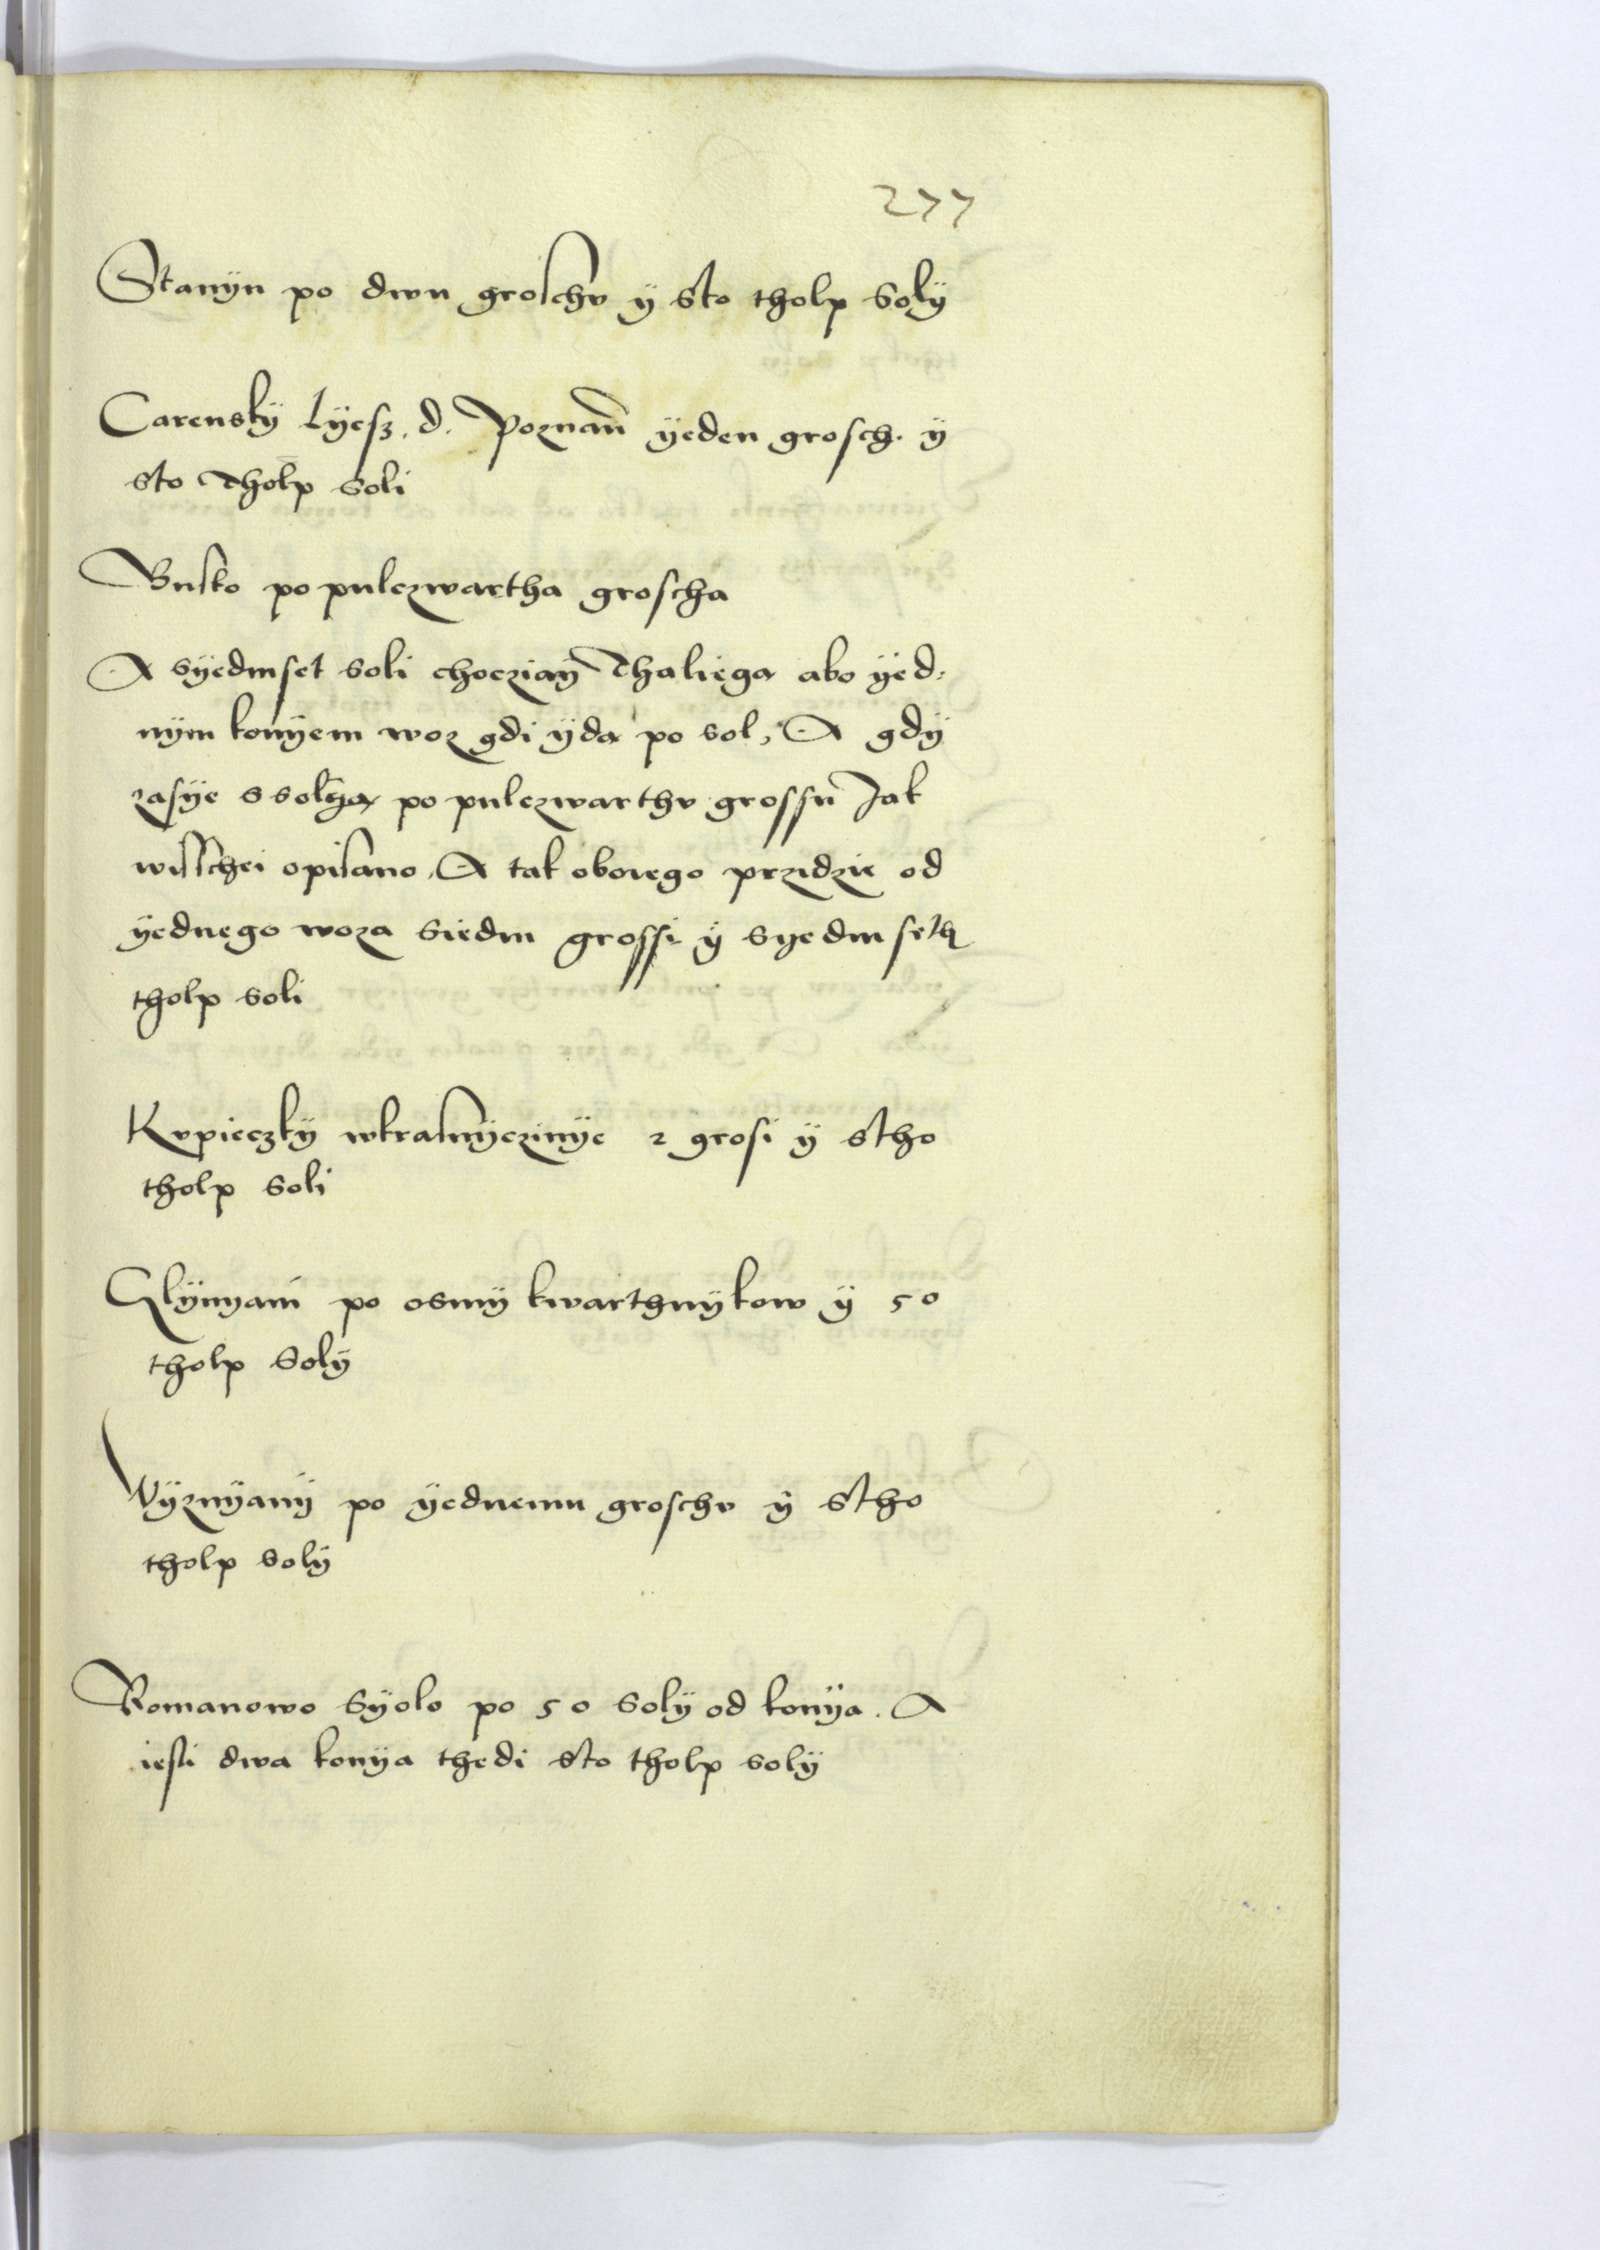 277
Stanÿn po dwu groschv ÿ sto tholp Solÿ
Carenskÿ lÿesz. d. Poznan̄ ÿeden grosch. ÿ
sto Tholp soli
Busko po pulczwartha groscha
A sÿedmset soli chocziaÿ Thaliega abo ÿed:
nÿm konÿem woz gdi ÿda po sol, A gdÿ
zasÿe s solya po pulczwarthv grossu Jak
wisschei opisano, A tak oboiego przidzie od
ÿednego woza Siedm grossi ÿ syedm seth
tholp soli
Kvpieczkÿ wkrasnÿczinÿe 2 grosi ÿ stho
tholp soli
Glÿnyani po osmÿ kwarthnÿkow ÿ 50
tholp Solÿ
Wÿznÿanÿ po ÿednemu groschv ÿ stho
tholp solÿ
Romanowo Sÿolo po 50 Solÿ od konÿa. A
iesli dwa konÿa thedi sto tholp solÿ